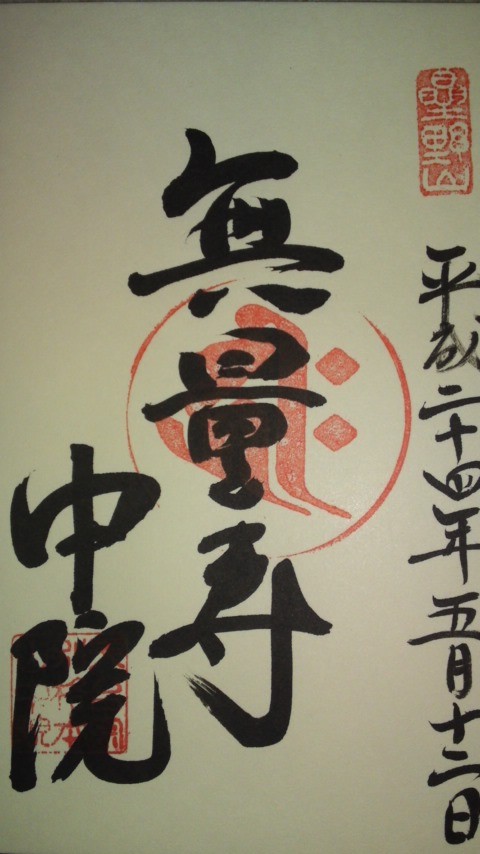 星野山
平成二十四年五月十二日
無量寿
中院